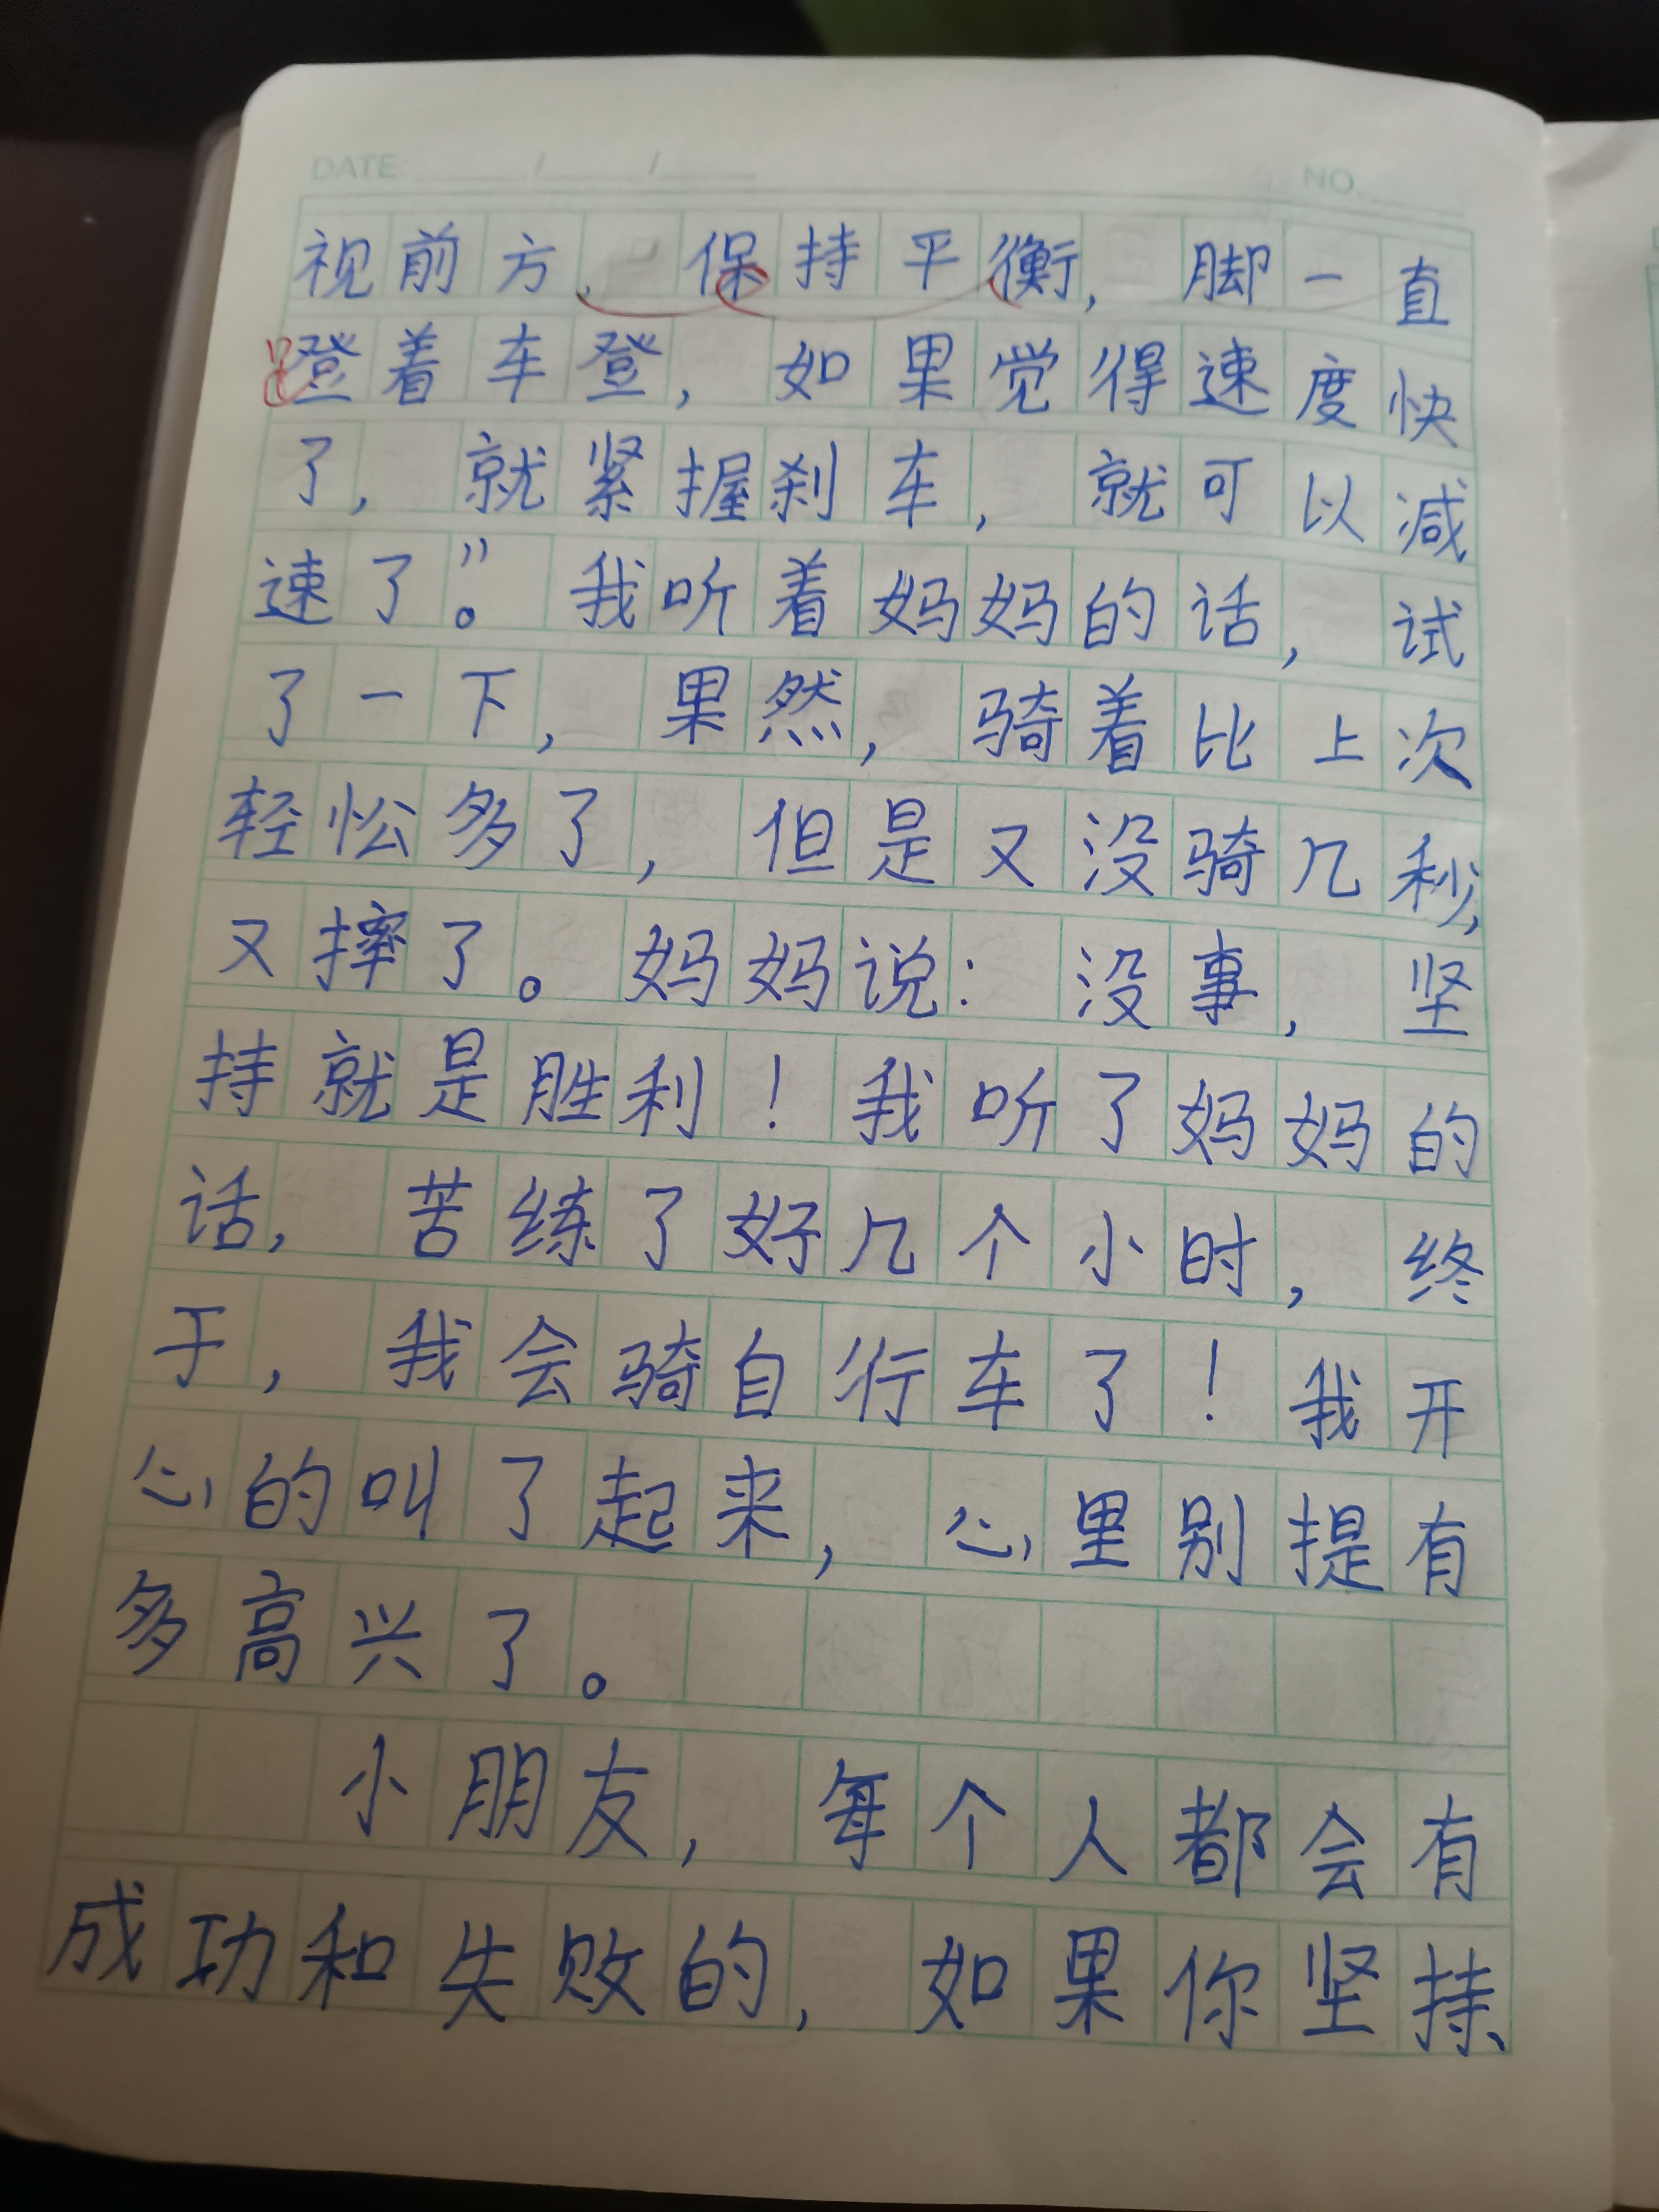 DATE / / NO.
视前方、保持平衡，脚一直
登着车登，如果觉得速度快
了，就紧握刹车，就可以减
速了。”我听着妈妈的话，试
了一下，果然，骑着比上次
轻松多了，但是又没骑几秒，
又摔了。妈妈说：没事，坚
持就是胜利！我听了妈妈的
话，苦练了好几个小时，终
于，我会骑自行车了！我开
心的叫了起来，心里别提有
多高兴了。
小朋友，每个人都会有
成功和失败的，如果你坚持、